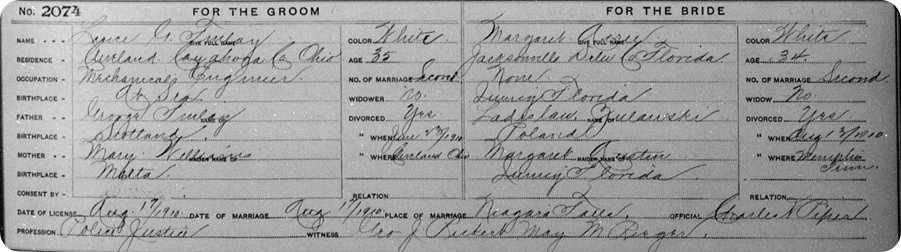 No. 2074 FOR THE GROOM FOR THE BRIDE
NAME George G. Finlay GIVE FULL NAME COLOR White Margaret GIVE FULL NAME COLOR White
RESIDENCE Cleveland Cayahoga Co Ohio AGE 35 Jacksonville Co Florida AGE 34
OCCUPATION Mechanical Engineer NO. OF MARRIAGE Second None NO. OF MARRIAGE Second
BIRTHPLACE At Sea WIDOWER No. Florida WIDOW No
FATHER George Finlay NAME OF DIVORCED Yes Ladislaw NAME OF DIVORCED Yes
BIRTHPLACE Scotland " WHEN 1910 Poland " WHEN Aug 1910
MOTHER Mary Williams MAIDEN NAME OF " WHERE Cleveland Ohio Margaret Austin MAIDEN NAME OF " WHERE Memphis Tenn.
BIRTHPLACE Malta Florida
CONSENT BY RELATION RELATION
DATE OF LICENSE Aug. 17/1910 DATE OF MARRIAGE Aug 17/1910 PLACE OF MARRIAGE Niagara Falls. OFFICIAL Charles Piper
PROFESSION Police Justice WITNESS Geo J. May M Berger